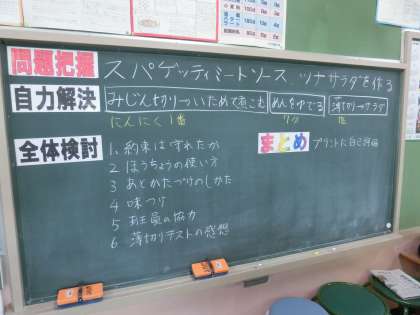 問題把握 スパゲッティミートソース、ツナサラダを作る
自力解決 みじん切り→いためて煮こむ めんをゆでる 薄切り→サラダ
にんにく1番 7分
全体検討 まとめ プリントに自己評価
1、約束は守れたか
2 ほうちょうの使い方
3 あとかたづけのしかた
4 味つけ
5 班員の協力
6 薄切りテストの感想